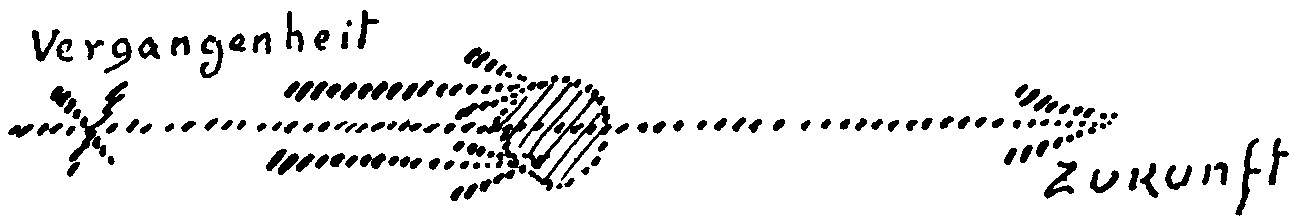 Vergangenheit
Zukunft